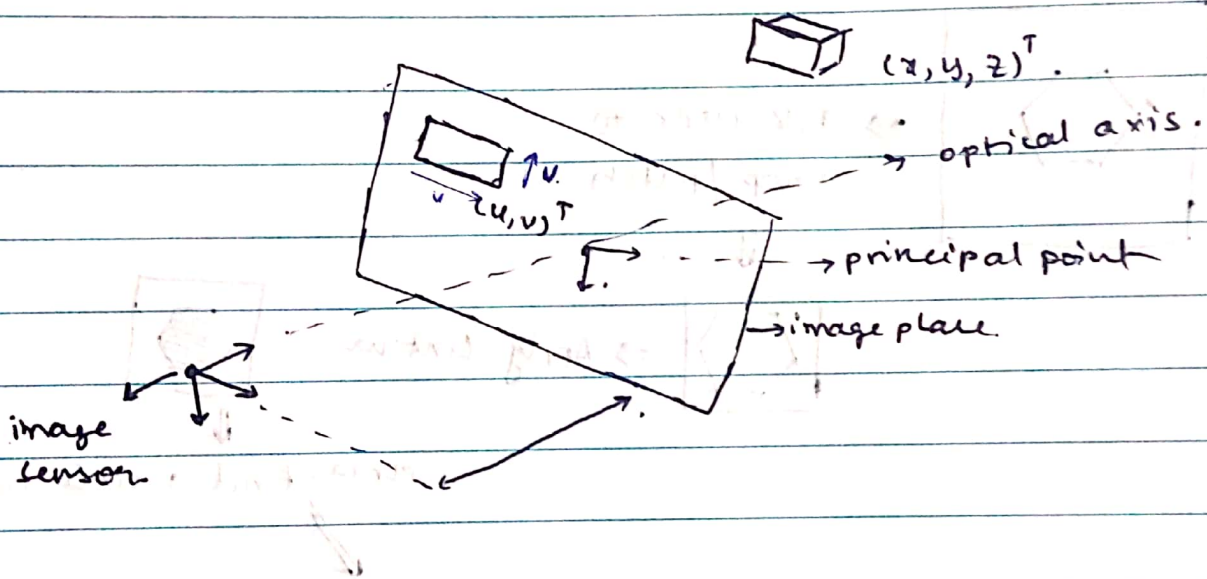 (x, y, z)ᵀ.
optical axis.
v.
u
(u, v)ᵀ
principal point
image plane
image
sensor.